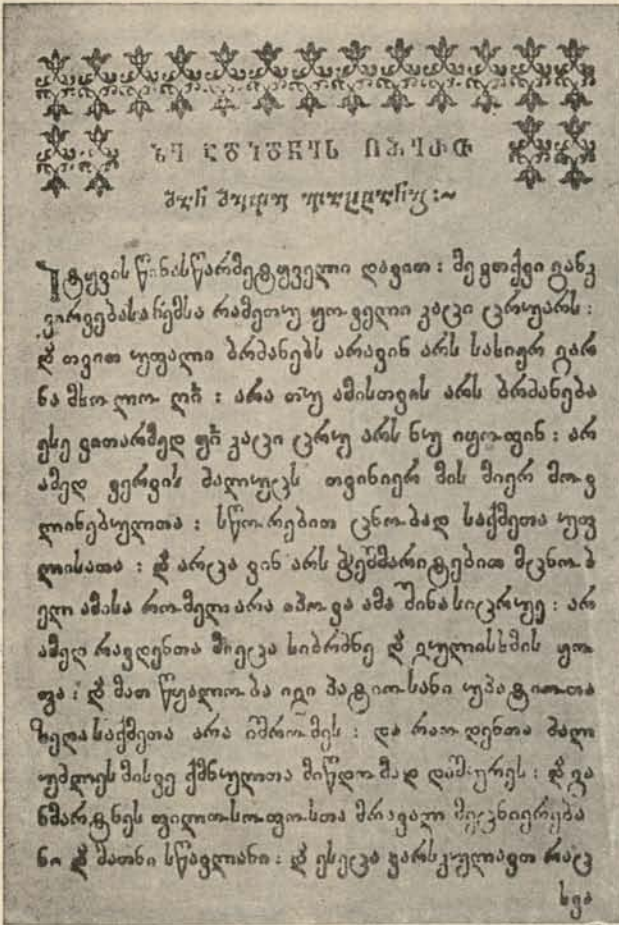 იტყვის წინასწარმეტყუველი დავით : მე ვთქვი განკ
ვირვებასა ჩემსა რამეთუ ყოველი კაცი ცრუარს :
დ̃ თვით უფალი ბრძანებს არავინ არს სახიერ გარ
ნა მხოლო ღნ̃ : არა თუ ამისთვის არს ბრძანება
ესე ვითარმედ ყნ̃ კაცი ცრუ არს ნუ იყოფინ : არ
ამედ ვერვის ძალუცს თვინიერ მის მიერ მოვ
ლინებულთა : სწორებით ცნობად საქმეთა უფ
ლისათა : დ̃ არცა ვინ არს ჭეშმარიტებით მცნობ
ელ ამისა რომელ არა ჰპოვა ამა შინა სიცრუე : არ
ამედ რავდენთა მიეცა სიბრძნე დ̃ გულისხმის ყო
ფა : დ̃ მათ წყალობა იგი პატიოსანი უპატიოთა
ზედა საქმეთა არა იშრომეს : და რაოდენთა ძალ
უძლეს მისვე ქმნულთა მიწდომად დაშურეს : დ̃ გა
ნმარტნეს ფილოსოფოსთა მრავალ მეცნიერება
ნო დ̃ მათნი სწავლანი : დ̃ ესეცა ვარსკულავთ რაც
ხვა